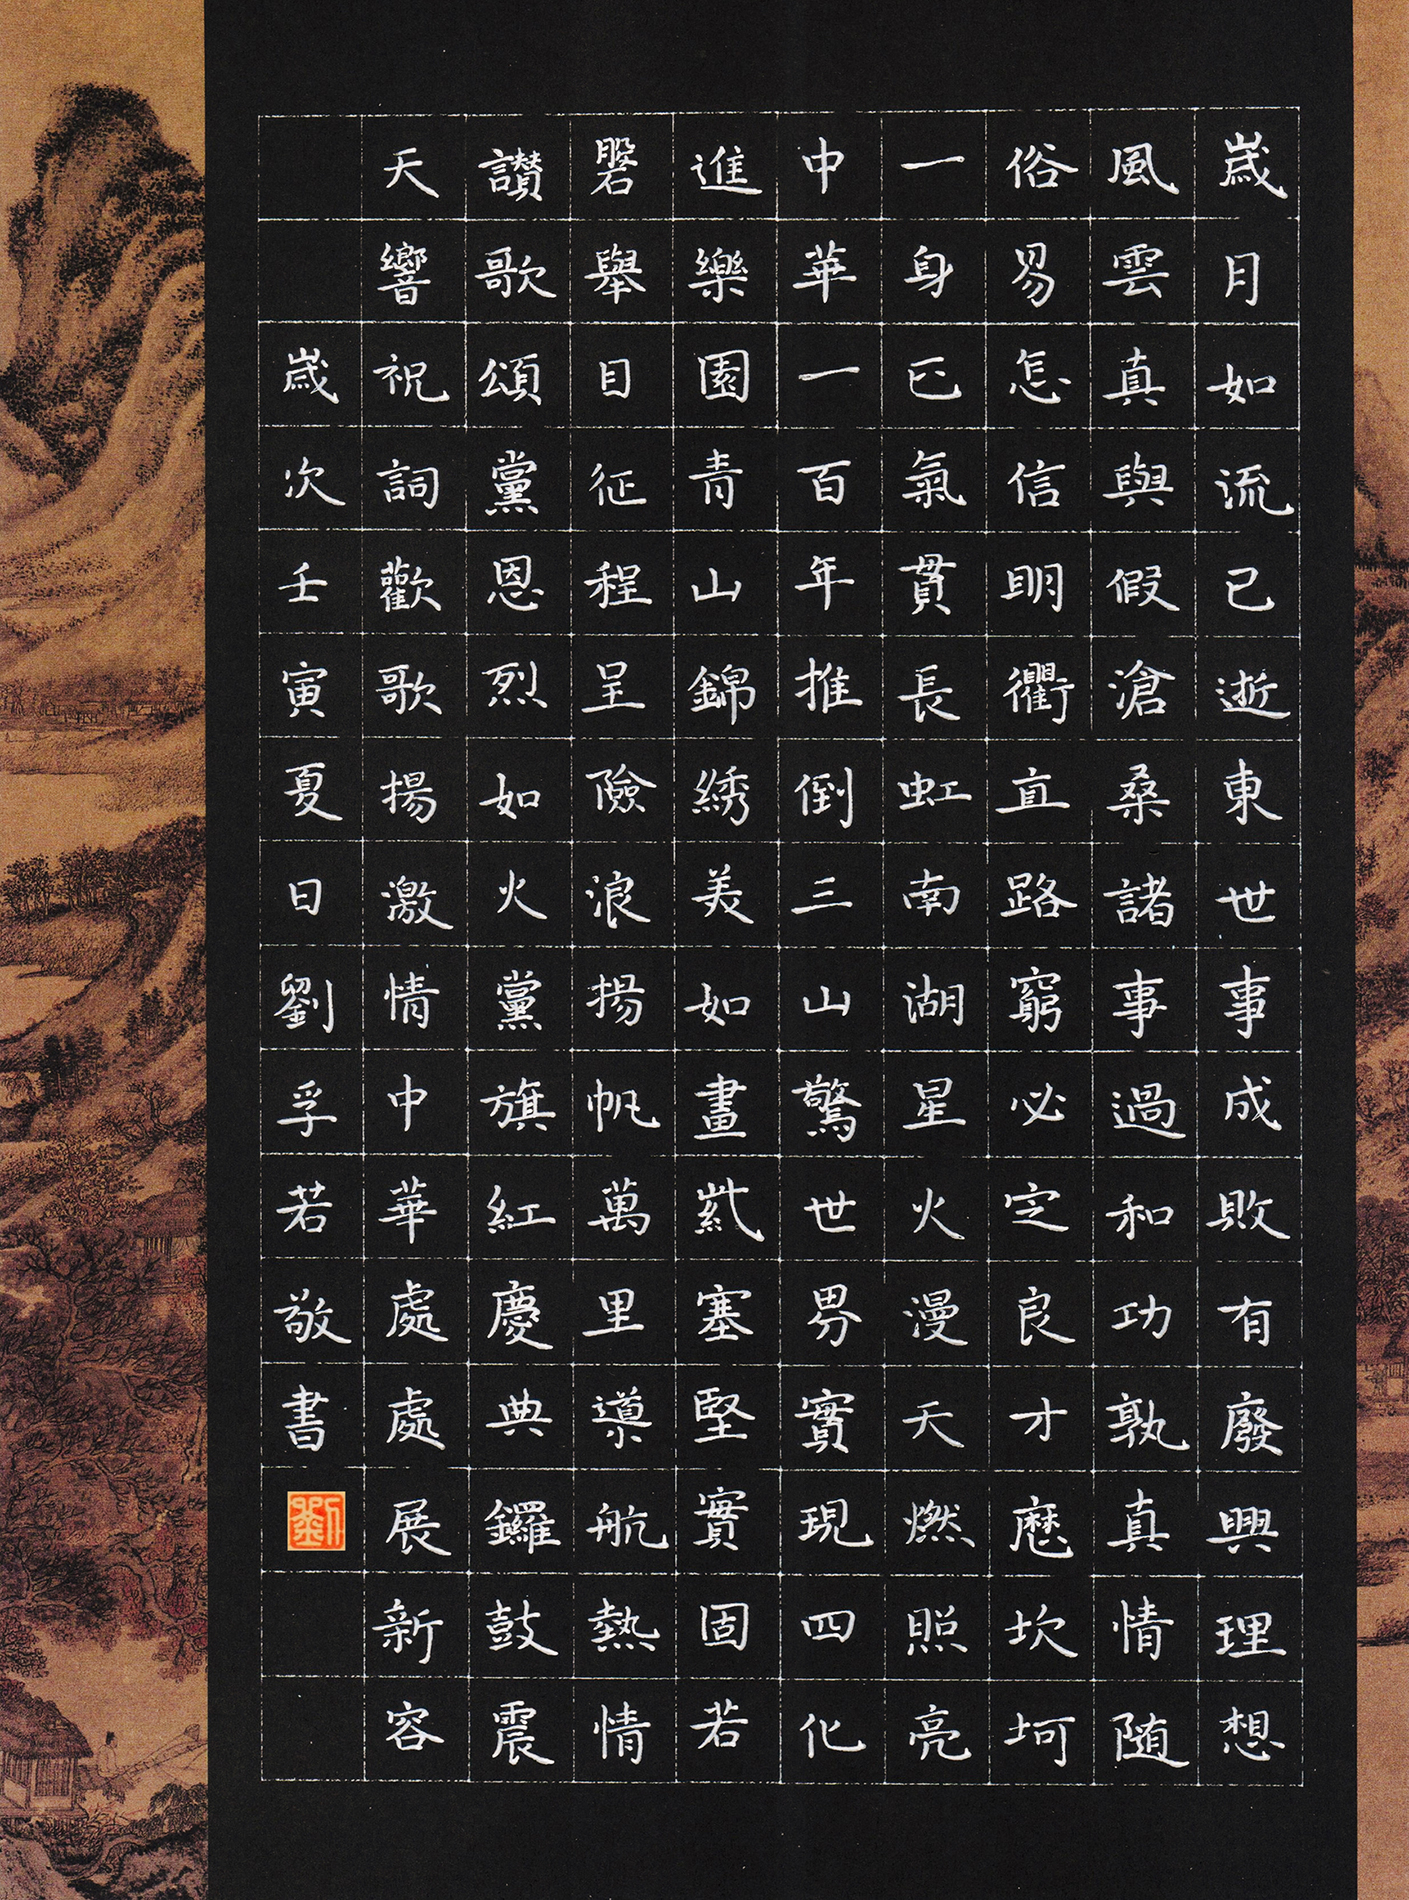 歲月如流已逝東世事成敗有廢興理想
風雲真與假滄桑諸事過和功孰真情随
俗易怎信明衢直路窮必定良才歷坎坷
一身正氣貫長虹南湖星火漫天燃照亮
中華一百年推倒三山驚世界實現四化
進樂園青山錦綉美如畫紮塞堅實固若
磐舉目征程呈險浪揚帆萬里導航熱情
讃歌頌黨恩烈如火黨旗紅慶典鑼鼓震
天響祝詞歡歌揚激情中華處處展新容
歲次壬寅夏日劉孚若敬書
劉